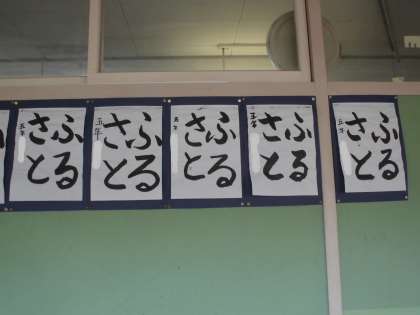 ふる
さと
五年
ふる
さと
五年
ふる
さと
五年
ふる
さと
五年
ふる
さと
五年